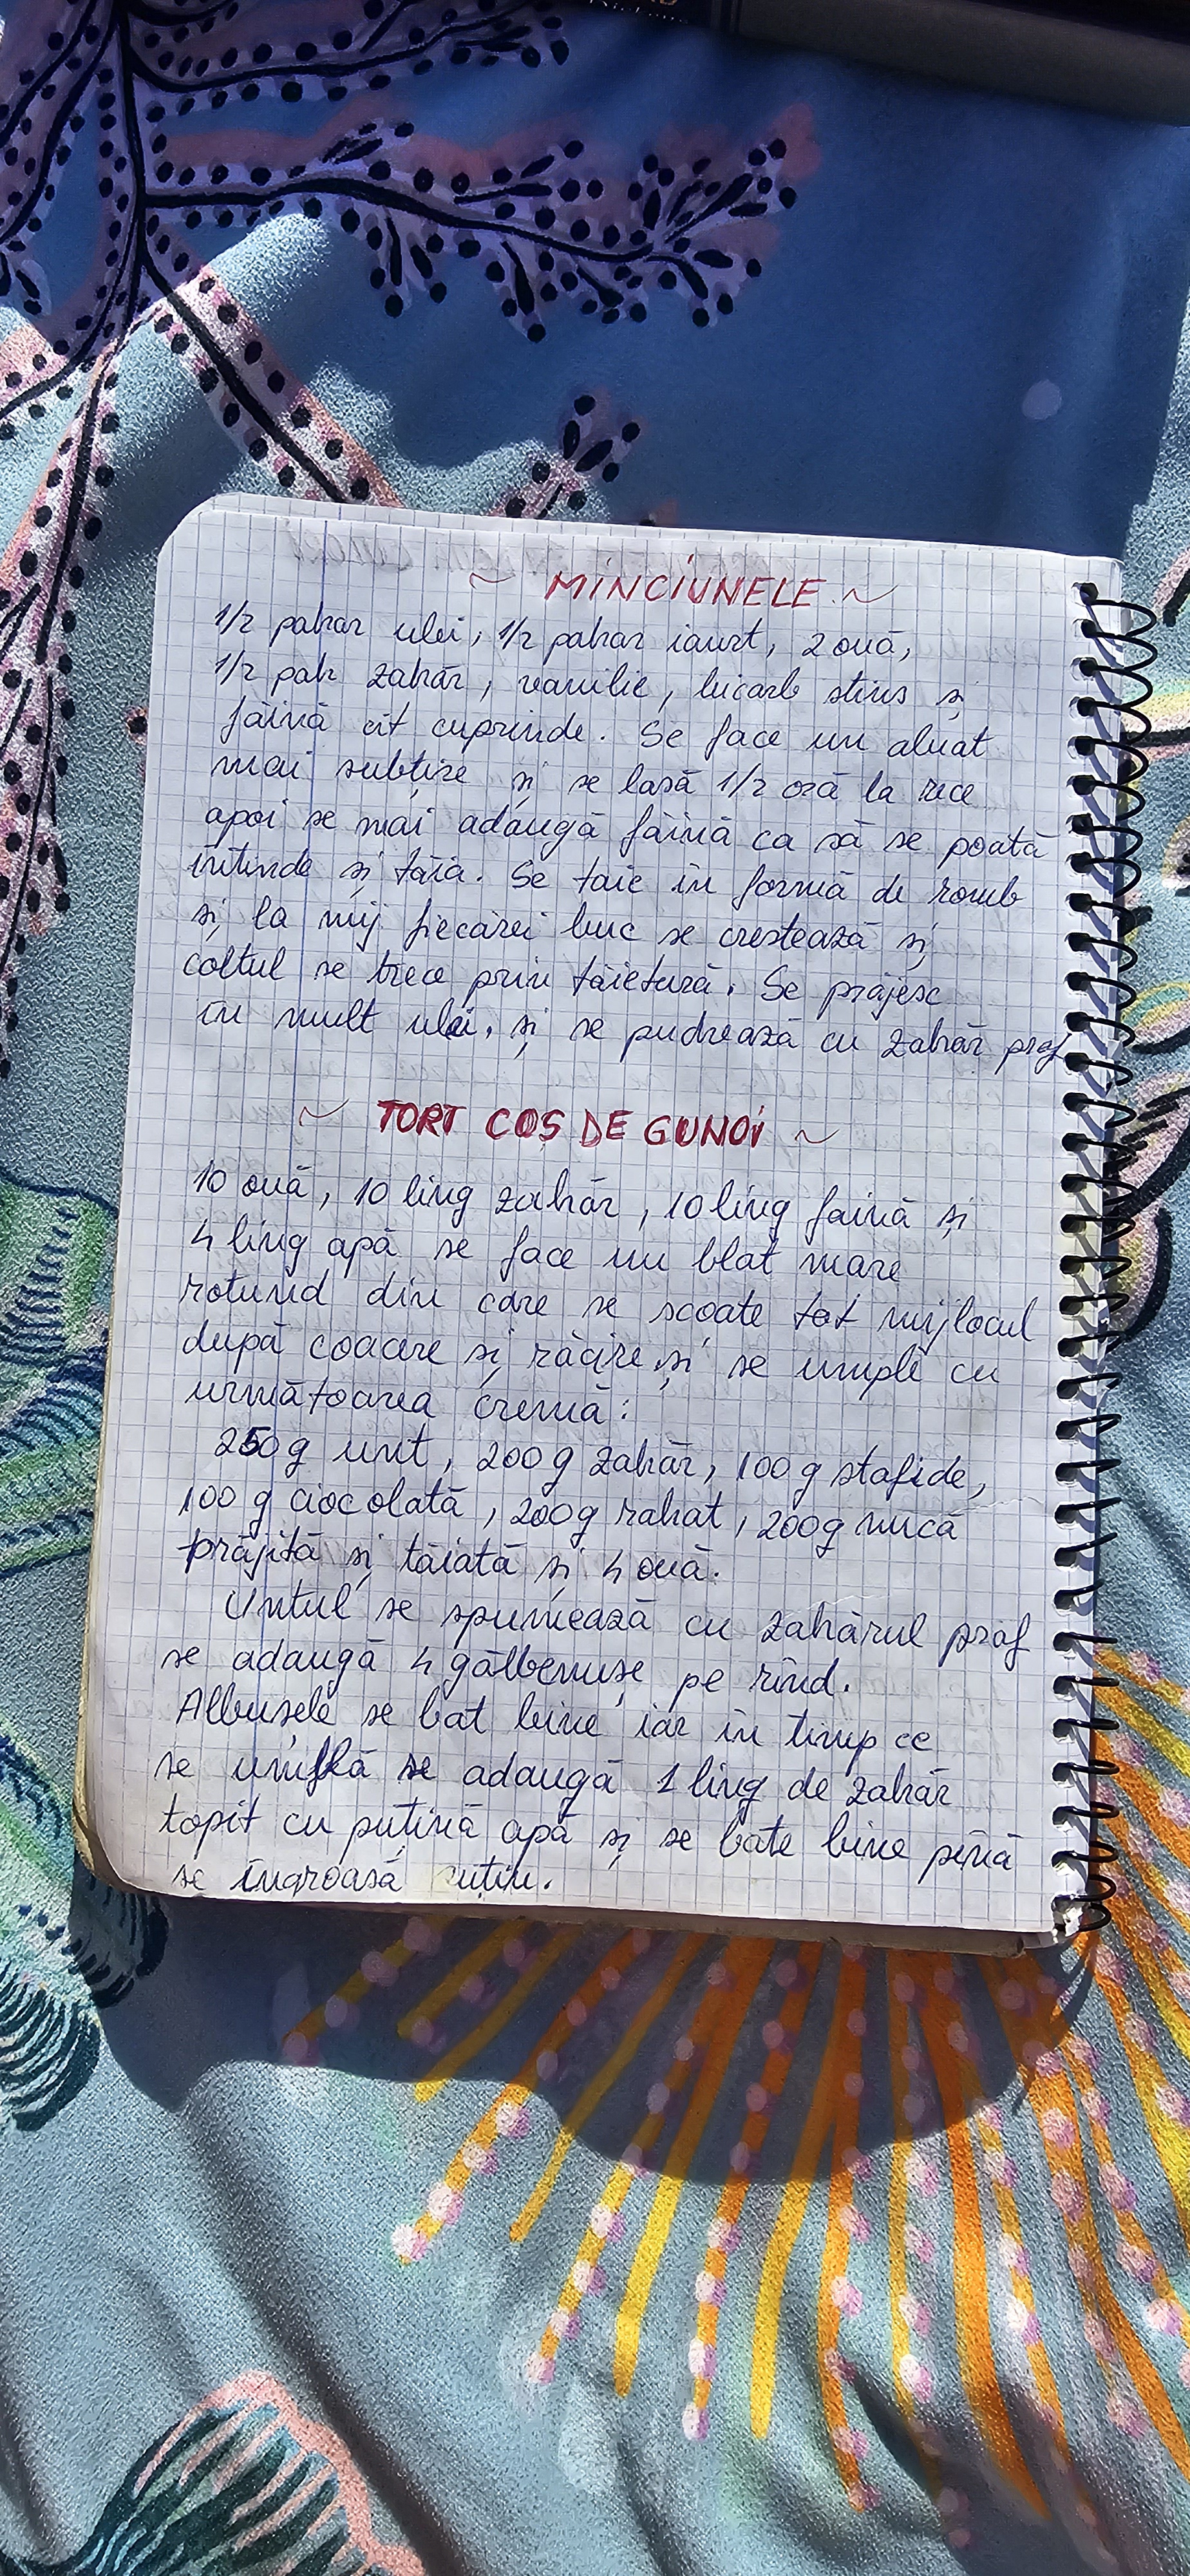 ~ MINCIUNELE ~
1/2 pahar ulei, 1/2 pahar iaurt, 2 ouă,
1/2 pah zahăr, vanilie, bicarb stins și
făină cît cuprinde. Se face un aluat
mai subțire și se lasă 1/2 oră la rece
apoi se mai adaugă făină ca să se poată
întinde și tăia. Se taie în formă de romb
și la mij fiecărei buc se crestează și
coltul se trece prin tăietură. Se prăjesc
în mult ulei, și se pudrează cu zahăr praf
~ TORT COȘ DE GUNOI ~
10 ouă, 10 ling zahăr, 10 ling faină și
4 ling apă se face un blat mare
rotund din care se scoate tot mijlocul
după coacere și răcire și se umple cu
următoarea cremă:
250g unt, 200g zahăr, 100g stafide,
100g ciocolată, 200g rahat, 200g nucă
prăjită și tăiată și 4 ouă.
Untul se spumează cu zahărul praf
se adaugă 4 gălbenușe pe rînd.
Albușele se bat bine iar în timp ce
se umflă se adaugă 1 ling de zahăr
topit cu puțină apă și se bate bine pînă
se îngroasă puțin.